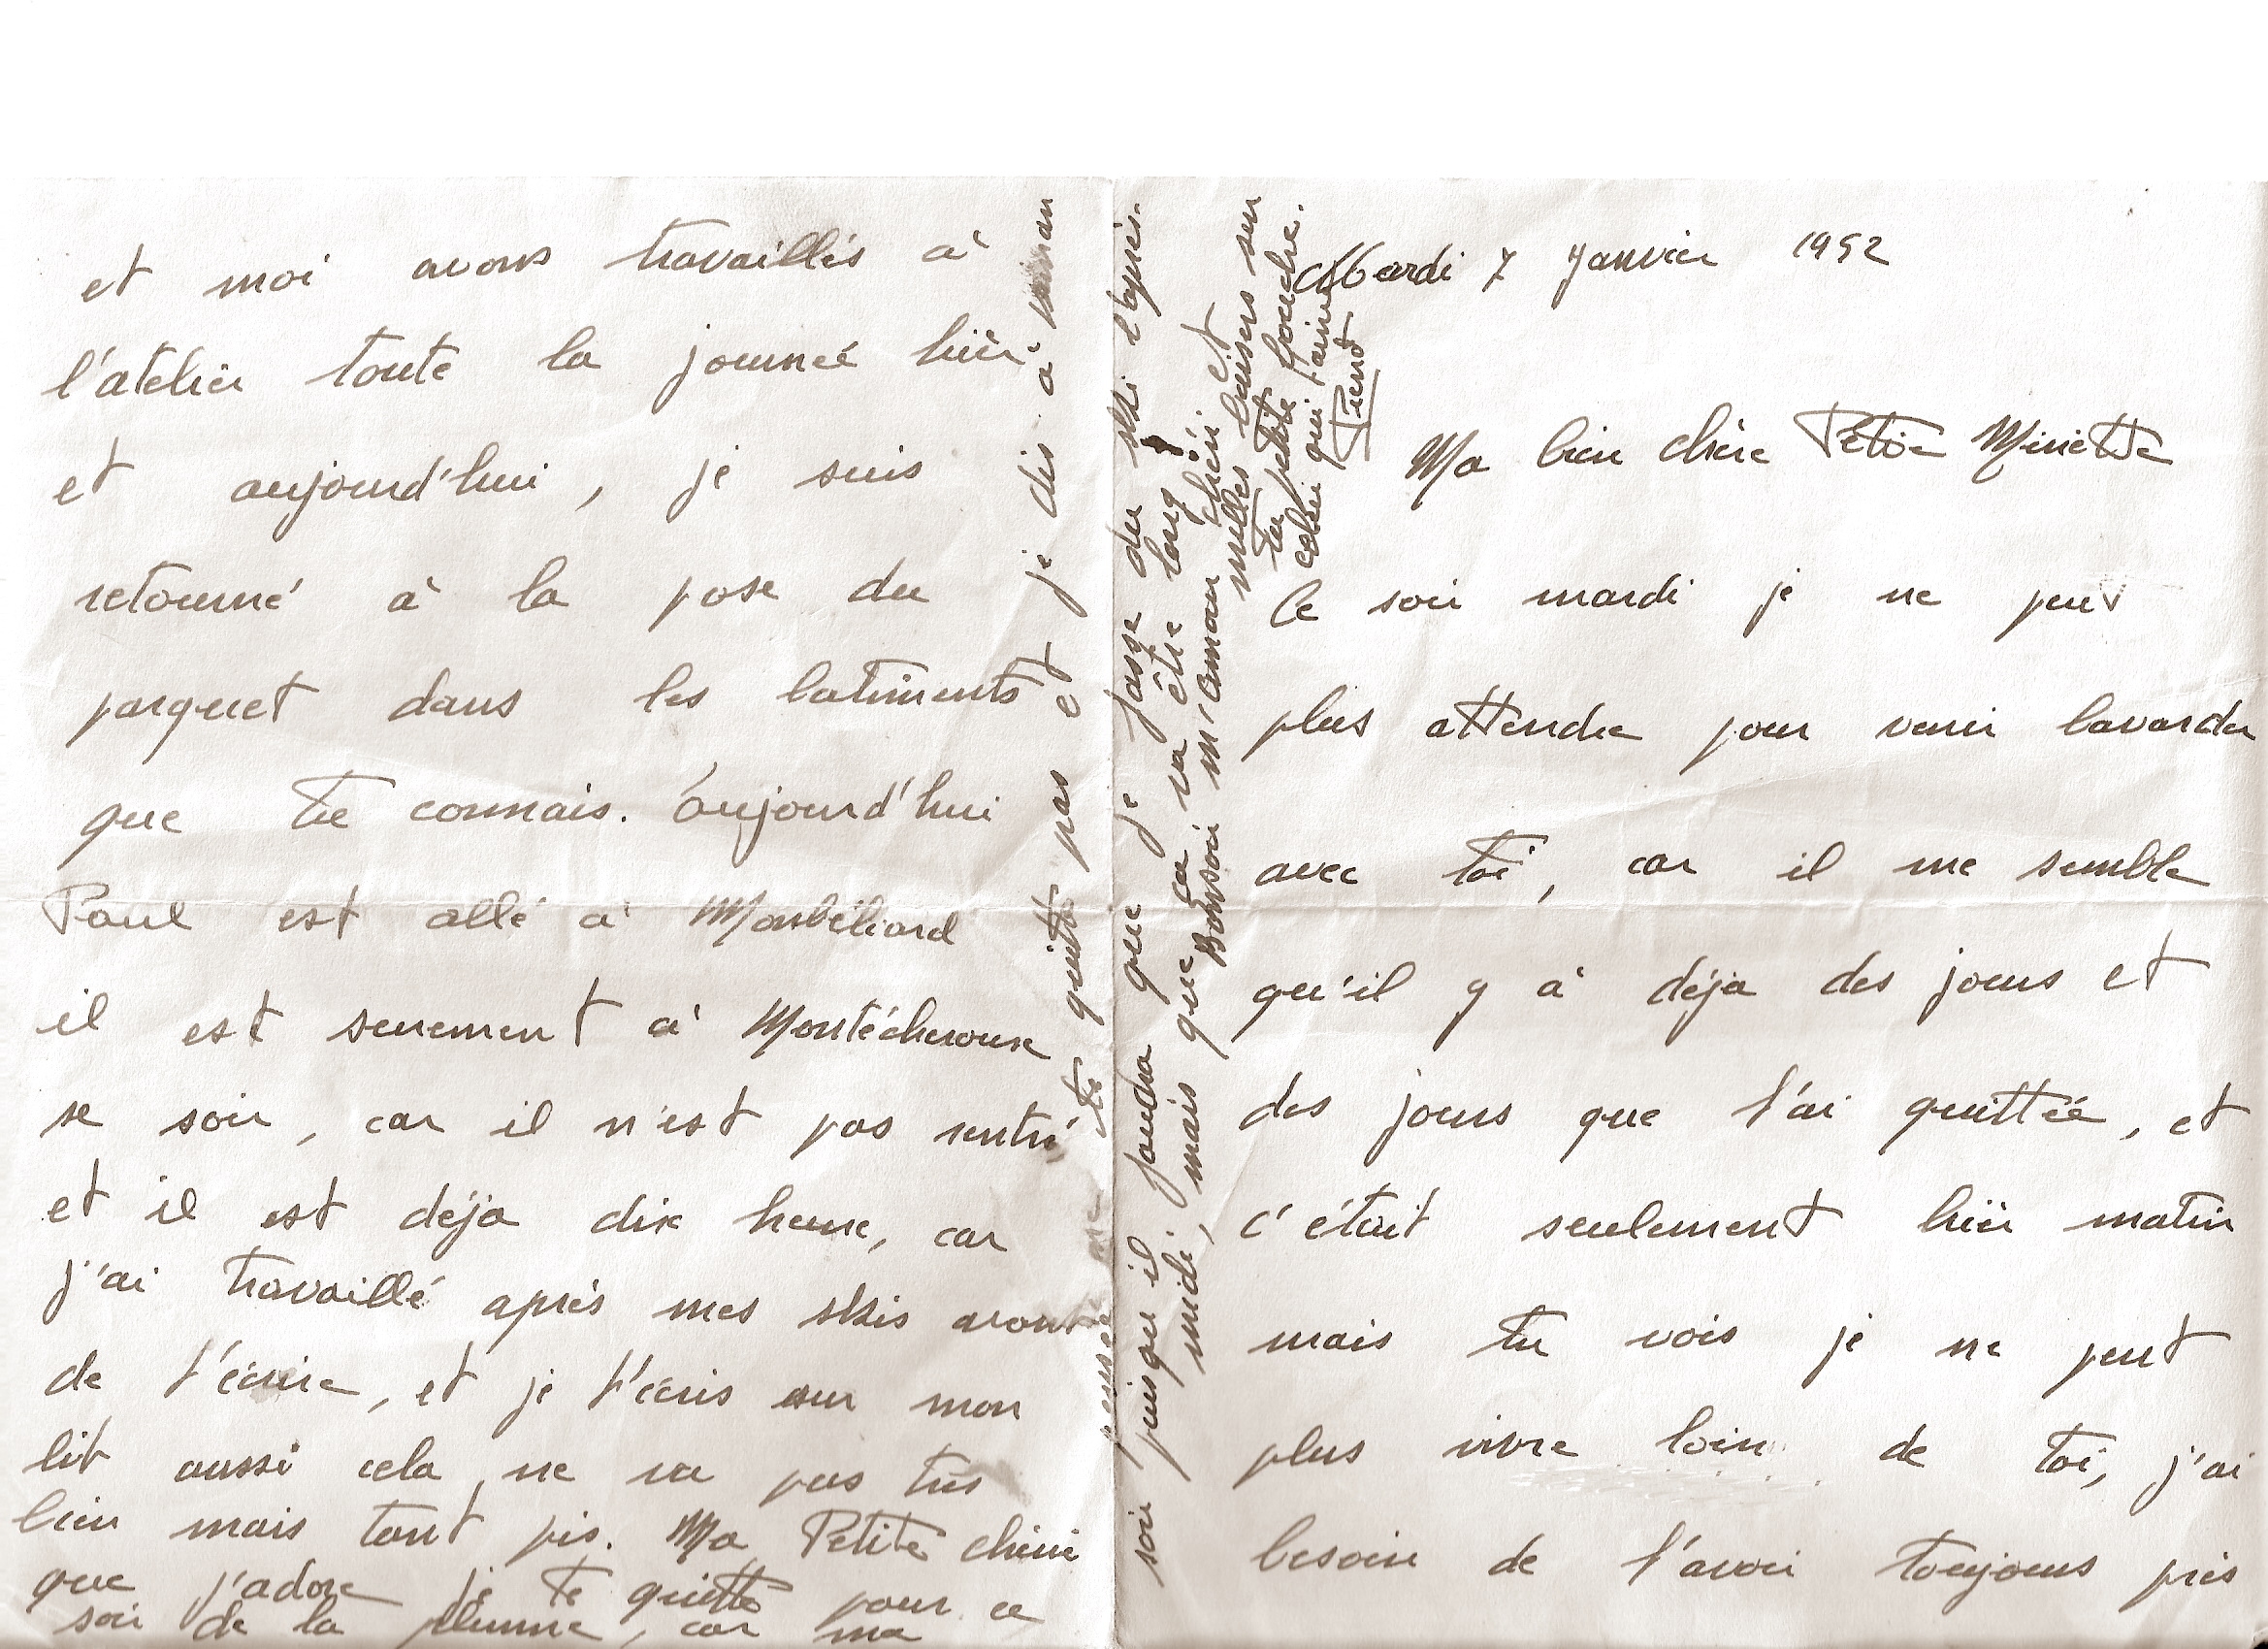 Mardi 7 Janvier 1952
Ma bien chère Petite Minette
Ce soir mardi je ne peux
plus attendre pour venir bavarder
avec toi, car il me semble
qu'il y à déja des jours et
des jours que t'ai quittée, et
c'était seulement hièr matin
mais tu vois je ne peut
plus vivre loin de toi, j'ai
besoin de t'avoir toujours près
et moi avons travaillés à
l'atelier toute la journée hièr
et aujourd'hui, je suis
retourné à la pose du
parquet dans les batiments
que tu connais. aujourd'hui
Paul est allé à Montbéliard
il est surement à Montécheroux
se soir, car il n'est pas rentré,
et il est déja dix heure, car
j'ai travaillé après mes skis avant
de t'écrire, et je t'écris sur mon
lit aussi cela ne va pas très
bien mais tant pis. Ma Petite chérie
que j'adore je te quitte pour ce
soir de la plume, car ma
pensée ne te quitte pas et je dis à
soir puisqu'il faudra que je fasse du ski l'après-
midi, mais que ça va être long !
Bonsoir m'Amour chéri et
milles baisers sur
ta petite bouche.
celui qui t'aime